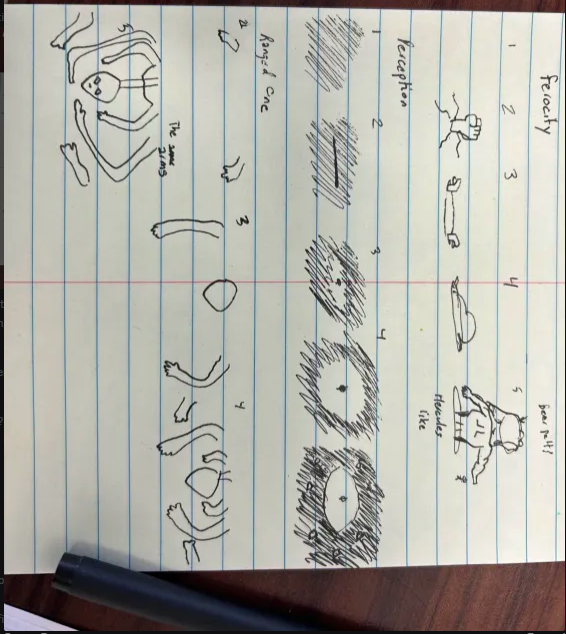 ferocity
1 2 3 4 5
bear pelt!
Hercules
like
Perception
1 2 3 4
Ranged one
2 3 4
5
The same
arms